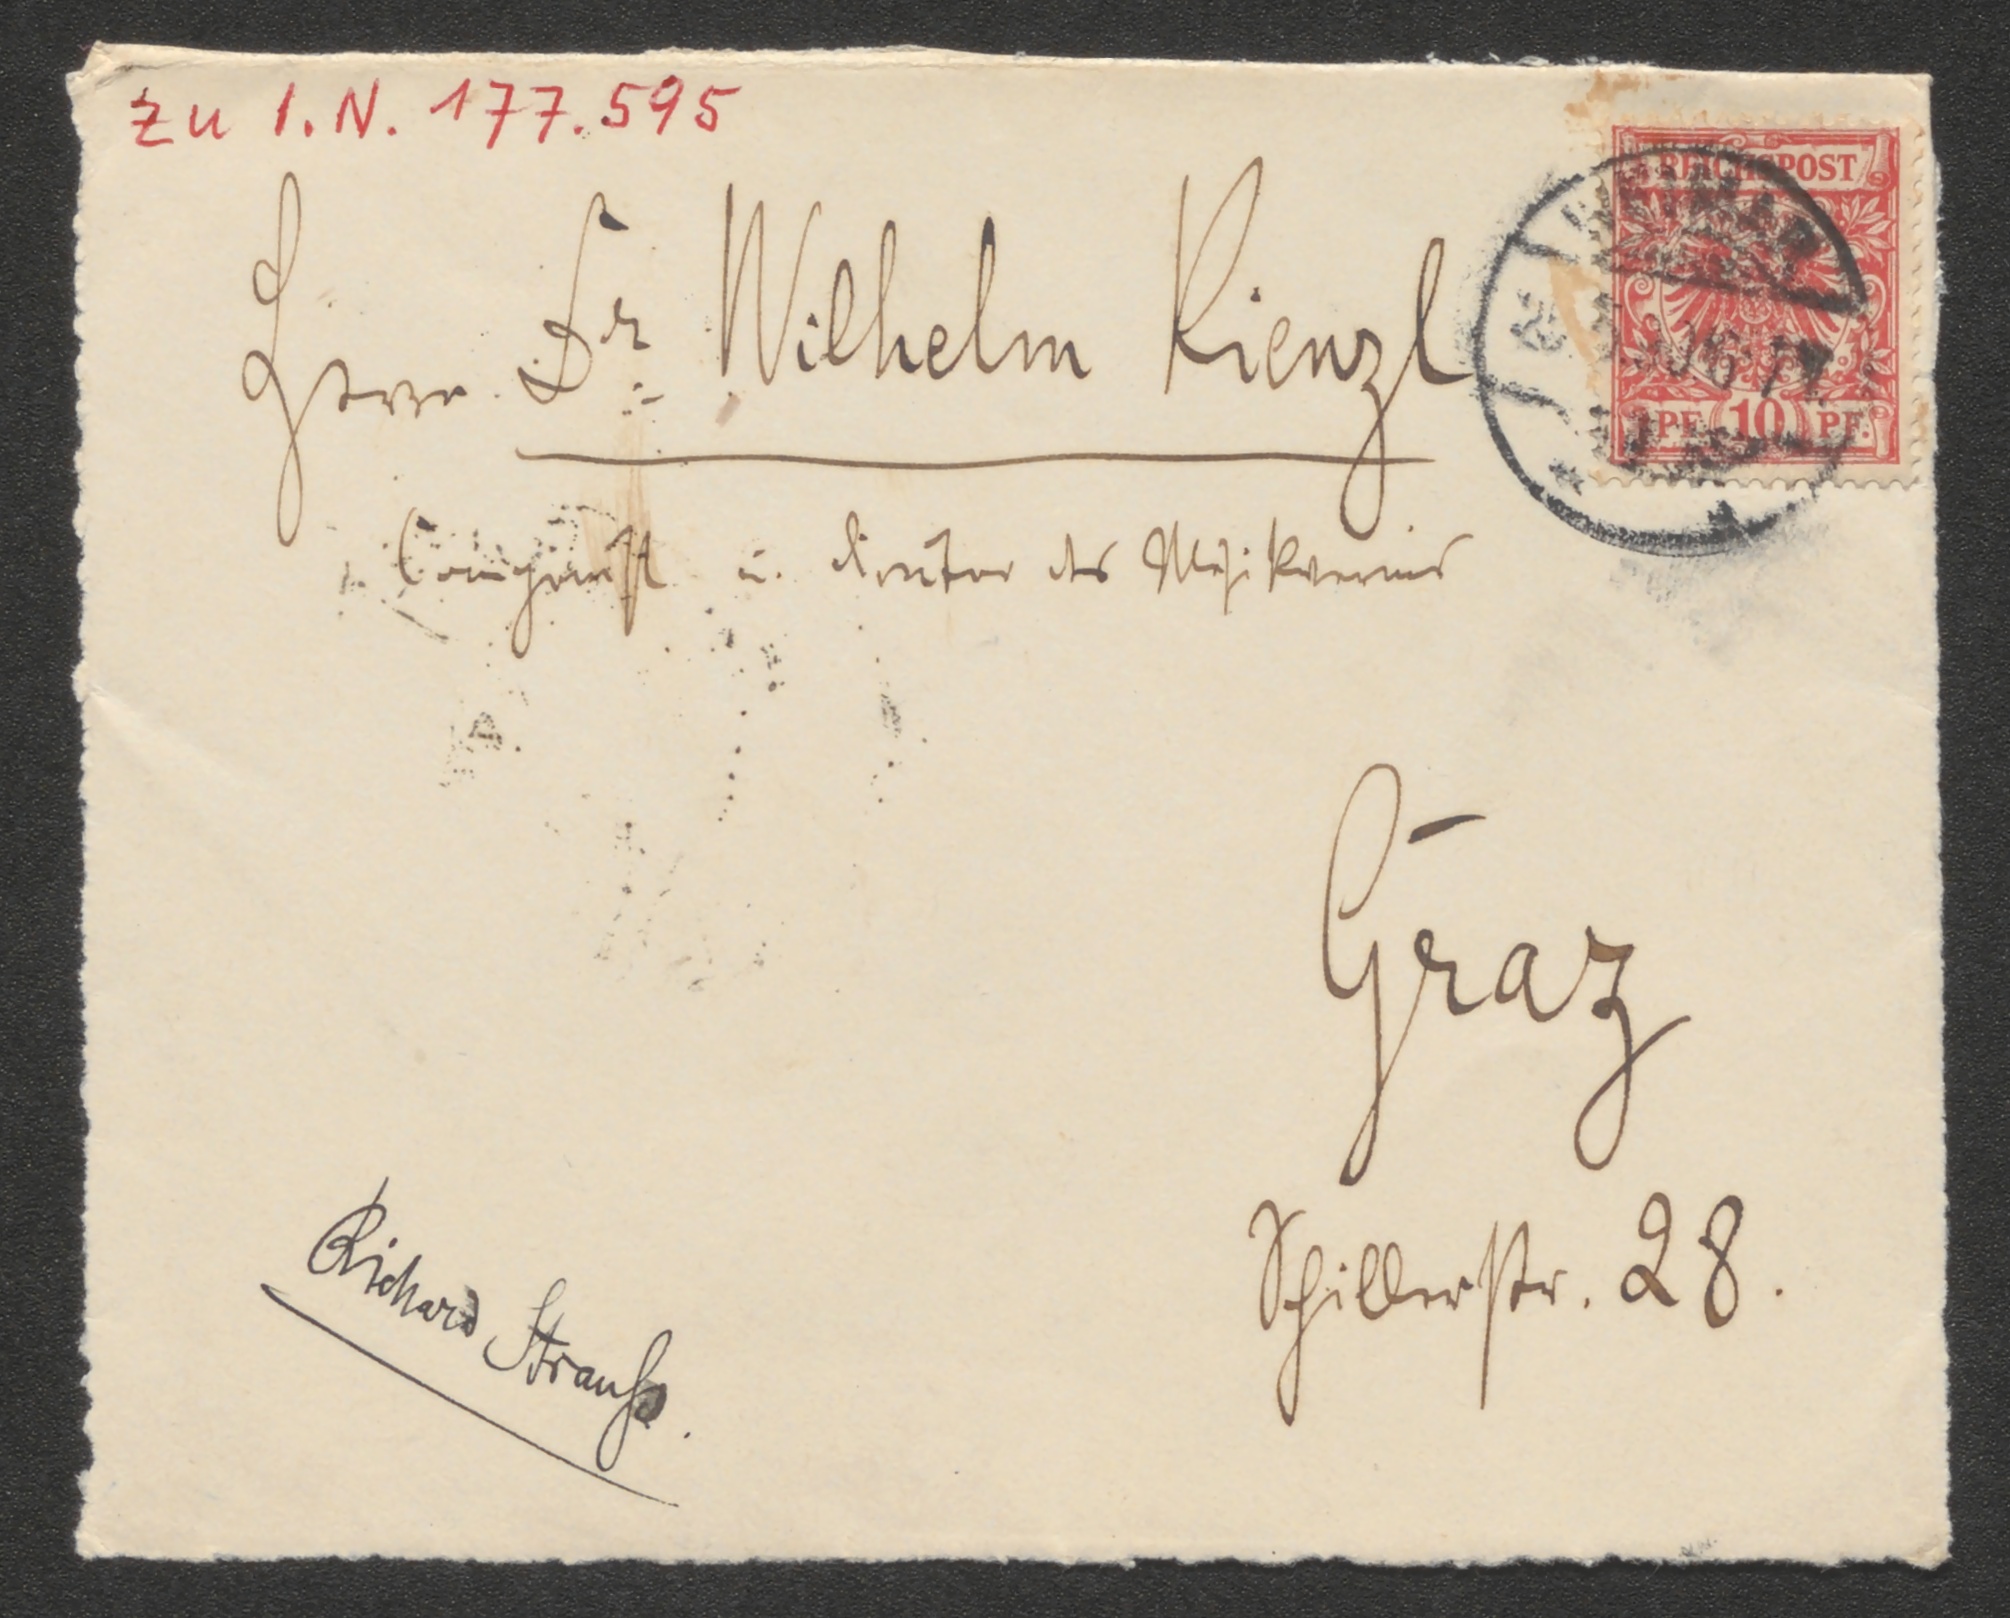 zu I.N. 177.595
REICHSPOST
WEIMAR
PF. 10 PF.
Herrn Dr. Wilhelm Kienzl
Componist u. Direktor des Musikvereins
Graz
Schillerstr. 28.
Richard Strauß.